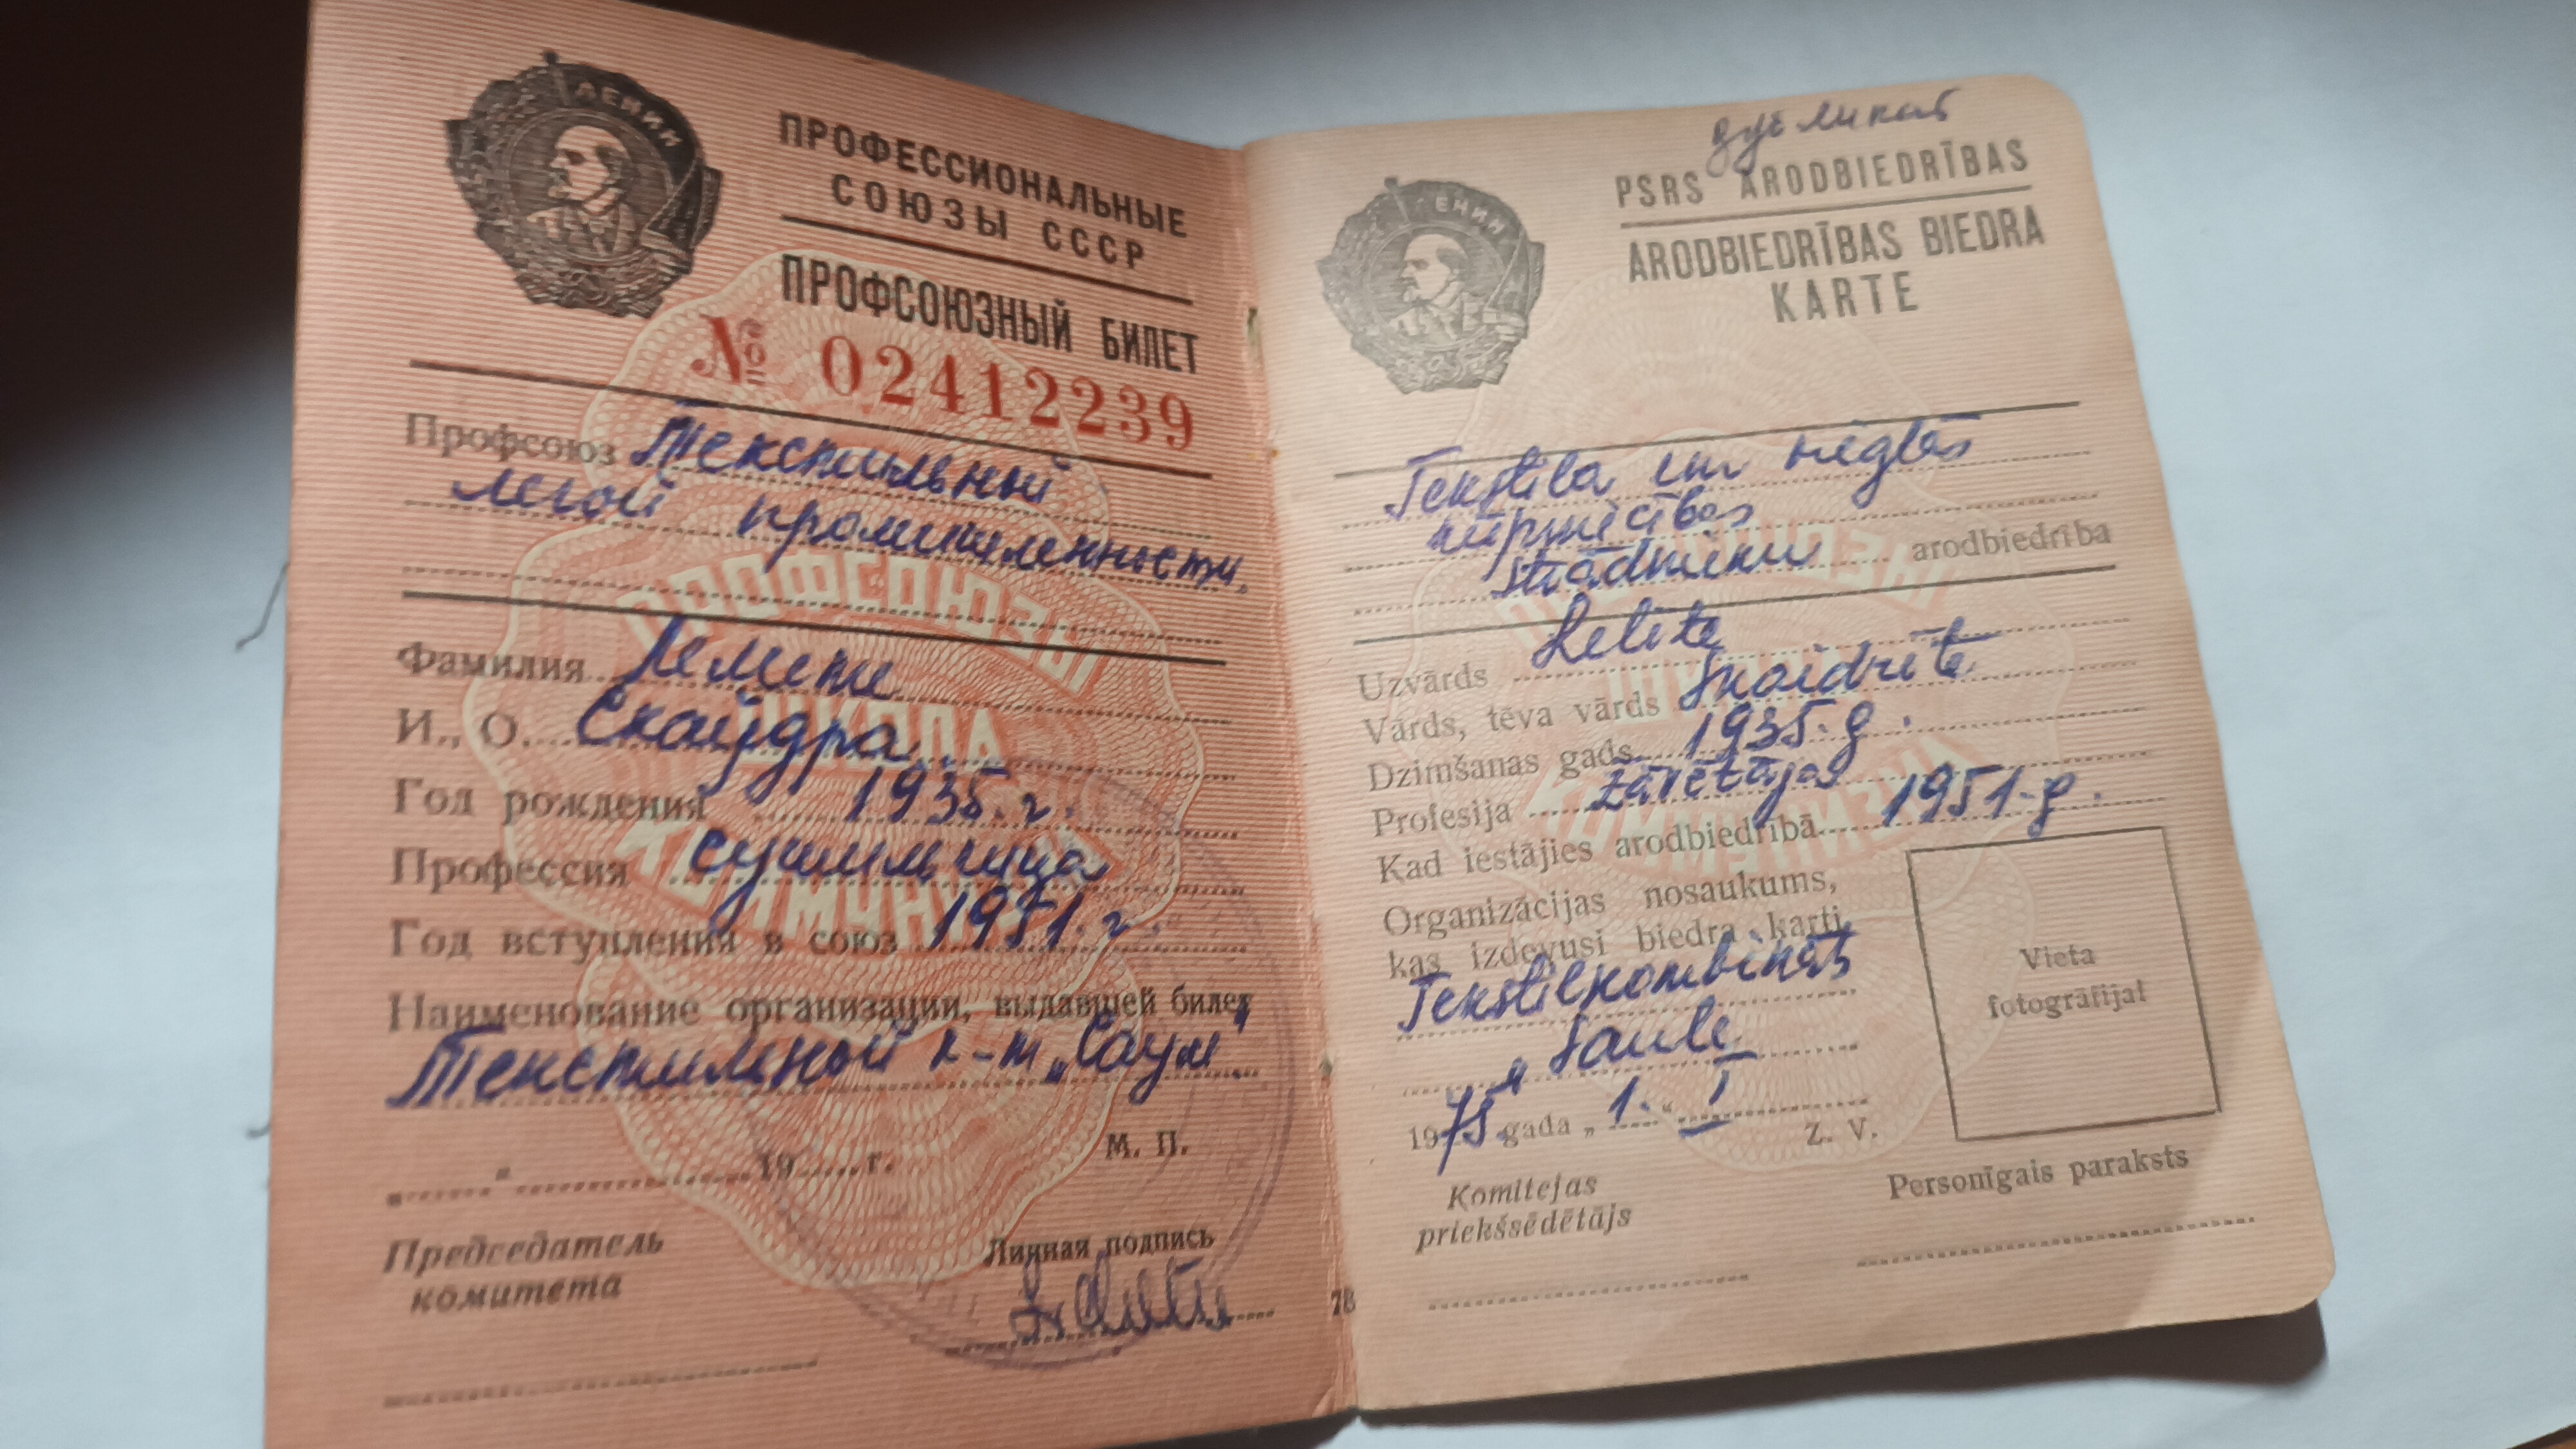 ЛЕНИН
ПРОФЕССИОНАЛЬНЫЕ
СОЮЗЫ СССР
ПРОФСОЮЗНЫЙ БИЛЕТ
№ 02412239
Профсоюз Текстильной
легой промышленности
Фамилия
И., О. Скайдра
Год рождения 1935. г.
Профессия сушильщица
Год вступления в союз 1951. г.
Наименование организации, выдавшей билет
Текстильной к-т „Сауле"
„ “ 19 г.
М. П.
Председатель
комитета
Личная подпись
ПРОФСОЮЗЫ
ШКОЛА
КОММУНИЗМА
78
дубликат
ЛЕНИН
PSRS ARODBIEDRĪBAS
ARODBIEDRĪBAS BIEDRA
KARTE
Tekstila un vieglās
rūpniecības
strādnieku arodbiedrība
Uzvārds Lelite
Vārds, tēva vārds Skaidrite
Dzimšanas gads 1935. g.
Profesija žāvētājas
Kad iestājies arodbiedrībā 1951. g.
Organizācijas nosaukums,
kas izdevusi biedra karti
Tekstilkombināts
„Saule
1975. gada „1.“ I
Z. V.
Vieta
fotogrāfijai
Komitejas
priekšsēdētājs
Personīgais paraksts